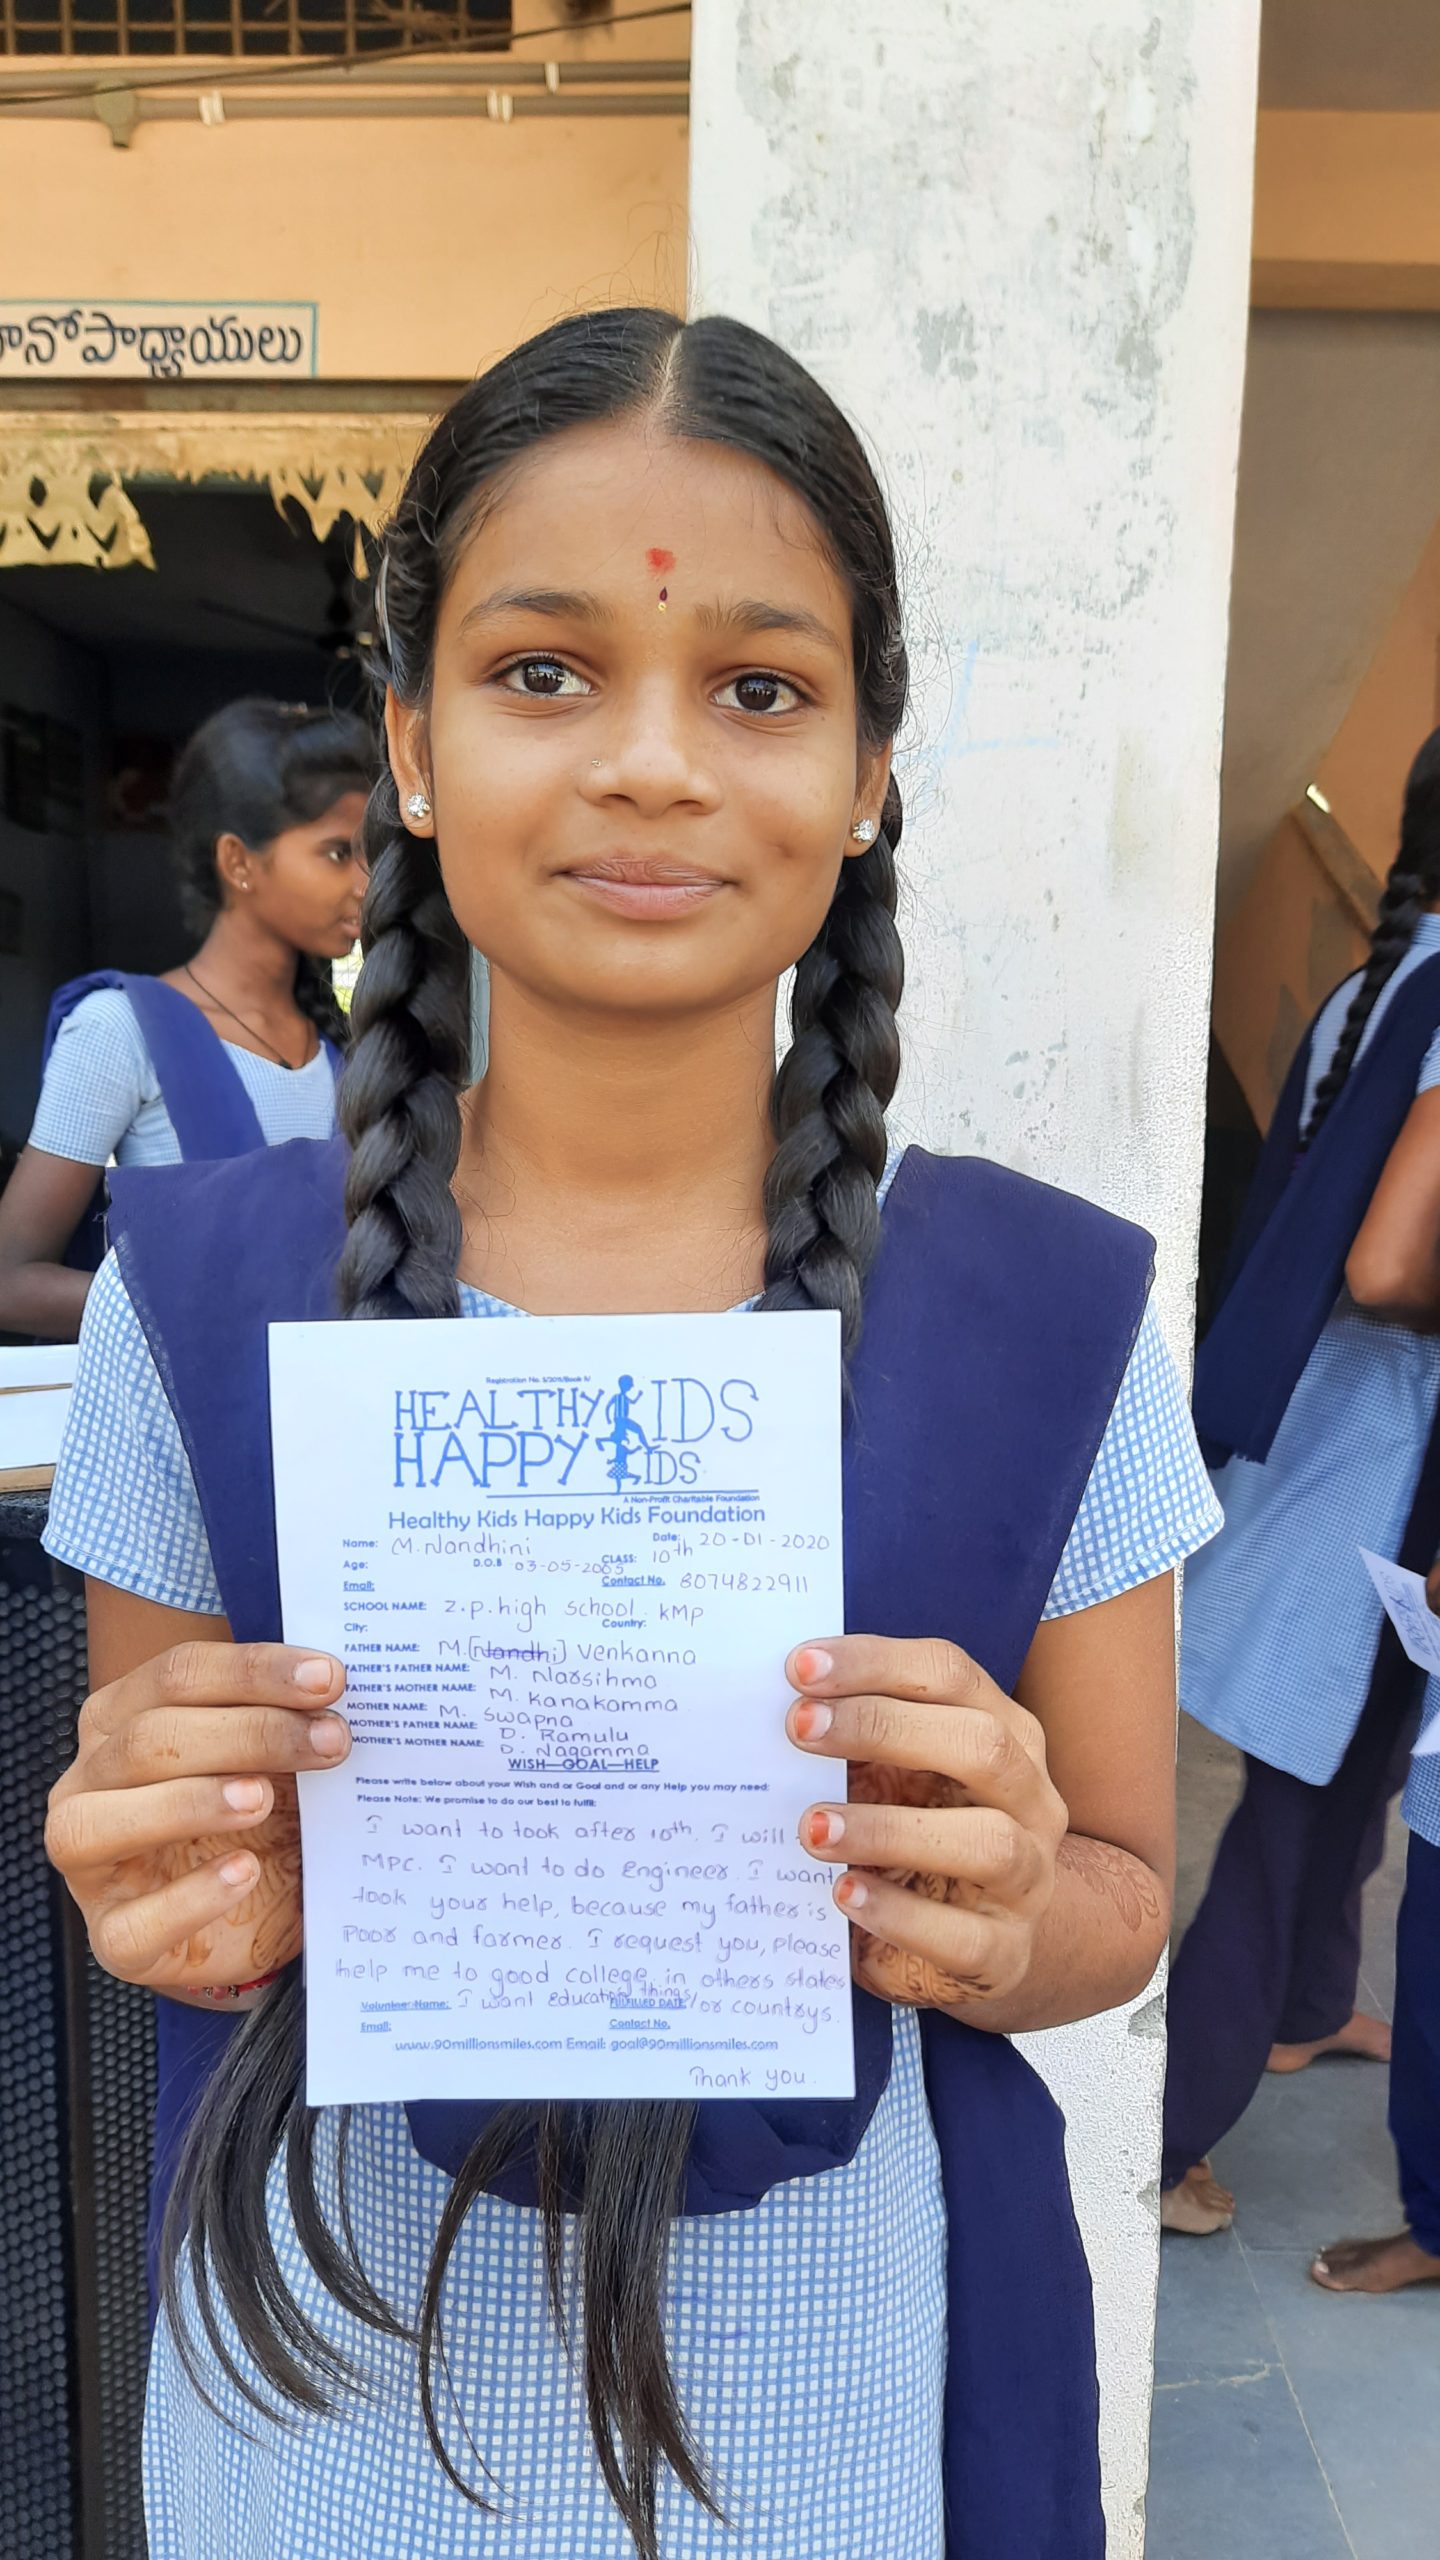 నోపాధ్యాయులు
Registration No. 5/2011/Book IV
HEALTHY KIDS
HAPPY KIDS
A Non-Profit Charitable Foundation
Healthy Kids Happy Kids Foundation
Name: M. Nandhini Date: 20-01-2020
Age: D.O.B 03-05-2005 CLASS: 10th
Email: Contact No. 8074822911
SCHOOL NAME: Z.p.high school. KMP
City: Country:
FATHER NAME: M. [Nandhi] Venkanna
FATHER'S FATHER NAME: M. Narsihma
FATHER'S MOTHER NAME: M. Kanakamma
MOTHER NAME: M. Swapna
MOTHER'S FATHER NAME: D. Ramulu
MOTHER'S MOTHER NAME: D. Nagamma
WISH—GOAL—HELP
Please write below about your Wish and or Goal and or any Help you may need:
Please Note: We promise to do our best to fulfil:
I want to took after 10th. I will
MPC. I want to do Engineer. I want
took your help, because my father is
Poor and farmer. I request you, please
help me to good college in others states
Volunteer Name: I want education things FULFILLED DATE: /or countrys.
Email: Contact No.
www.90millionsmiles.com Email: goal@90millionsmiles.com
Thank you.